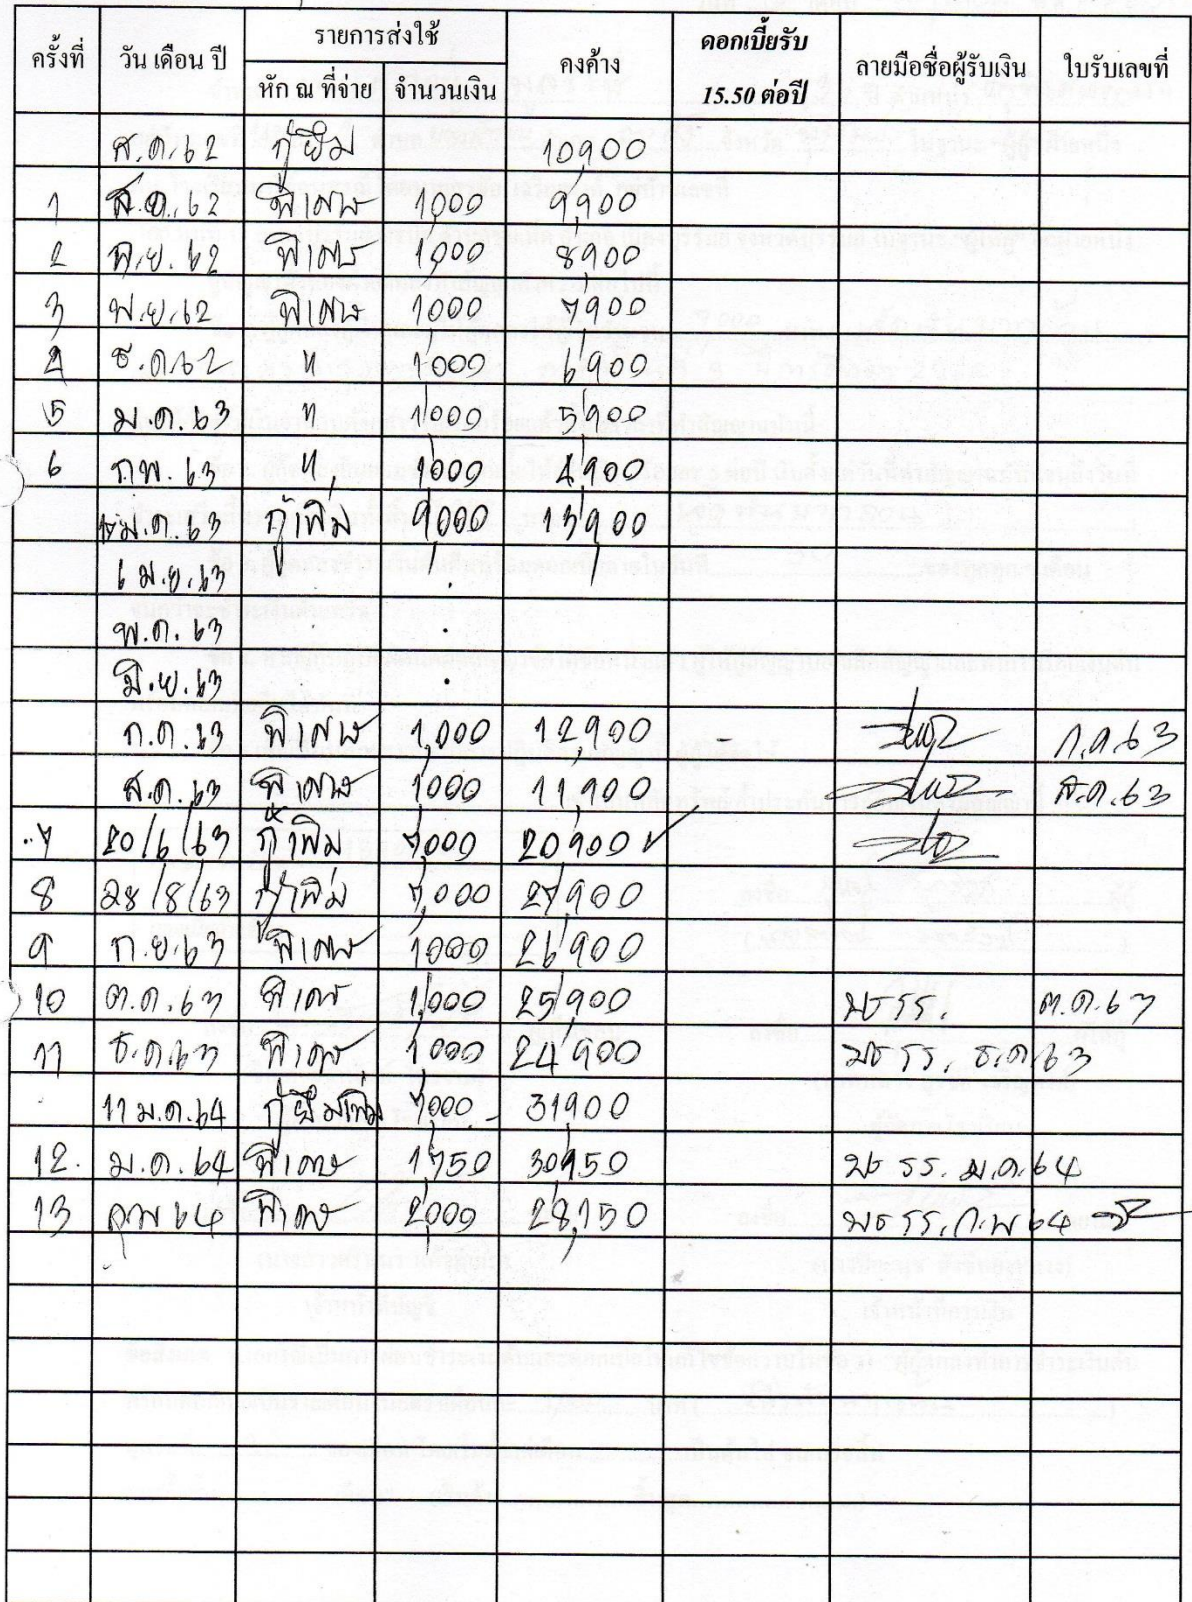 ครั้งที่ วัน เดือน ปี รายการส่งใช้ คงค้าง ดอกเบี้ยรับ ลายมือชื่อผู้รับเงิน ใบรับเลขที่
หัก ณ ที่จ่าย จำนวนเงิน 15.50 ต่อปี
ส.ค.62 กู้ยืม 10,900
1 ส.ค.62 พิเศษ 1,000 9,900
2 ก.ย.62 พิเศษ 1,000 8,900
3 พ.ย.62 พิเศษ 1000 7,900
4 ธ.ค.62 " 1,000 6,900
5 ม.ค.63 " 1,000 5,900
6 ก.พ.63 " 1,000 4,900
มี.ค.63 กู้เพิ่ม 9,000 13,900
เม.ย.63
พ.ค.63
มิ.ย.63
ก.ค.63 พิเศษ 1,000 12,900 - ก.ค.63
ส.ค.63 พิเศษ 1000 11,900 ส.ค.63
7 20/6/63 กู้เพิ่ม 9,000 20,900 ✓
8 28/8/63 กู้เพิ่ม 7,000 27,900
9 ก.ย.63 พิเศษ 1000 26,900
10 ต.ค.63 พิเศษ 1,000 25,900 บธรร. ต.ค.63
11 ธ.ค.63 พิเศษ 1000 24,900 บธรร. ธ.ค.63
11 ม.ค.64 กู้ยืมเพิ่ม 7,000 31,900
12. ม.ค.64 พิเศษ 1,750 30,150 บธรร. ม.ค.64
13 ก.พ 64 พิเศษ 2,000 28,150 บธรร. ก.พ 64